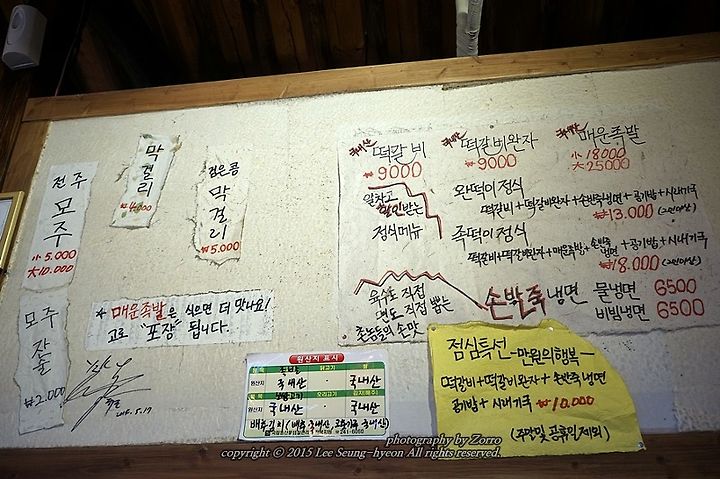 전주 모주
小 5.000
大 10.000
막걸리
₩4.000
검은콩 막걸리
₩5.000
모주 자울
₩2.000
* 매운족발은 식으면 더 맛나요!
고로 "포장" 됩니다.
2015.5.17
국내산 떡갈비
₩9000
국내산 떡갈비완자
₩9000
국내산 매운족발
小 18000
大 25000
알차고
할인받는
정식메뉴
완떡이정식
떡갈비+떡갈비완자+손반죽냉면+공기밥+시래기국
₩13.000 (2인이상)
족떡이정식
떡갈비+떡갈비완자+매운족발+손반죽냉면+공기밥+시래기국
₩18.000 (2인이상)
육수도 직접
면도 직접 뽑는
촌놈들의 손맛
손반죽냉면
물냉면 6500
비빔냉면 6500
원산지 표시
품목 닭고기
원산지 국내산 · 국내산
품목 오리고기
원산지 국내산 · 국내산
배추김치 (배추 국내산, 고추가루 국내산)
점심특선 -만원의행복-
떡갈비+떡갈비완자+손반죽냉면
공기밥+시래기국 ₩10.000
(주말및 공휴일제외)
photography by Zorro
copyright © 2015 Lee Seung-hyeon All rights reserved.